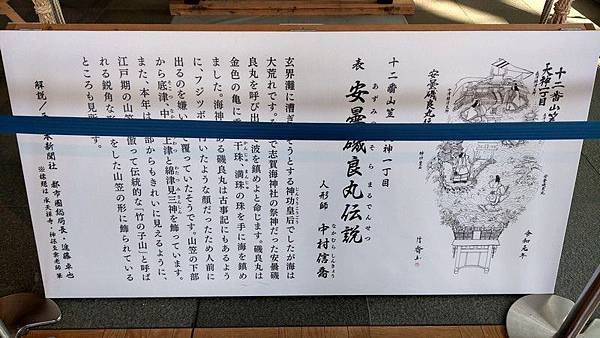 十二番山笠
天神一丁目
安曇磯良丸伝
令和元年
十二番山笠 神一丁目
表 安曇磯良丸伝説
人形師 中村信喬
なかむらしんきょう
玄界灘に漕ぎ そうとする神功皇后でしたが海は
大荒れです。 で志賀海神社の祭神だった安曇磯
良丸を呼び出 波を鎮めよと命じます。磯良丸は
金色の亀に 干珠、満珠の珠を手に海を鎮め
ました。海神 ある磯良丸は古事記にもあるよう
に、フジツボ 付いたような顔だったため人前に
出るのを嫌い 覆っていたそうです。山笠の下部
から底津、中 上津と綿津見三神を飾っています。
また、本年は 部からもきれいに見えるように、
江戸期の山笠 倣って伝統的な「竹の子山」と呼ば
れる鋭角な をした山笠の形に飾られている
ところも見所 す。
解説/ 本新聞社 都市圏総局長・遠藤卓也
※標題は承天禅寺・神保至雲老師筆